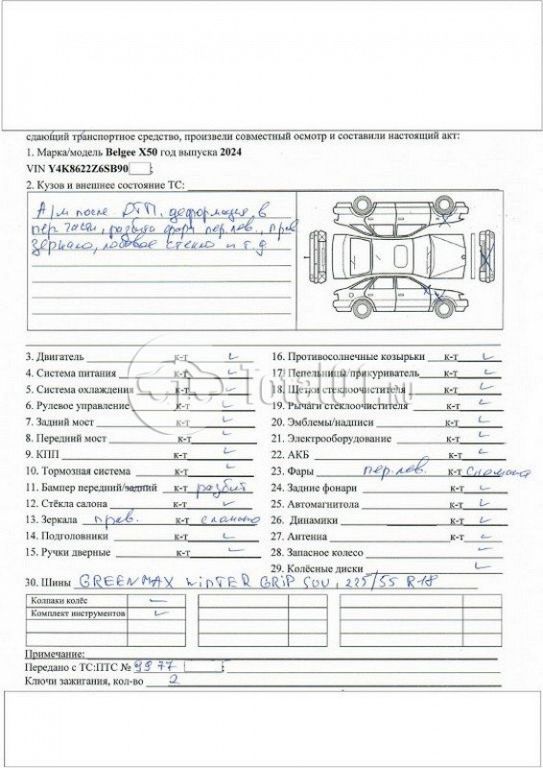 сдающий транспортное средство, произвели совместный осмотр и составили настоящий акт:
1. Марка/модель Belgee X50 год выпуска 2024
VIN Y4K8622Z6SB90 ;
2. Кузов и внешнее состояние ТС:
А/м после ДТП, деформация в
пер. части, разбита фара пер. лев., прав
зеркало, лобовое стекло и т.д
3. Двигатель к-т ✓
4. Система питания к-т ✓
5. Система охлаждения к-т ✓
6. Рулевое управление к-т ✓
7. Задний мост к-т ✓
8. Передний мост к-т ✓
9. КПП к-т ✓
10. Тормозная система к-т ✓
11. Бампер передний/задний к-т разбит
12. Стёкла салона к-т ✓
13. Зеркала прав. к-т сломано
14. Подголовники к-т ✓
15. Ручки дверные к-т ✓
16. Противосолнечные козырьки к-т ✓
17. Пепельницы/прикуриватель к-т ✓
18. Щетки стеклоочистителя к-т ✓
19. Рычаги стеклоочистителя к-т ✓
20. Эмблемы/надписи к-т ✓
21. Электрооборудование к-т ✓
22. АКБ к-т ✓
23. Фары пер. лев. к-т сломана
24. Задние фонари к-т ✓
25. Автомагнитола к-т ✓
26. Динамики к-т ✓
27. Антенна к-т ✓
28. Запасное колесо ✓
29. Колёсные диски ✓
30. Шины GREENMAX WINTER GRIP SUV, 225/55 R18
Колпаки колёс ✓
Комплект инструментов ✓
Примечание:
Передано с ТС:ПТС № 9977 ;
Ключи зажигания, кол-во 2
Total01.ru